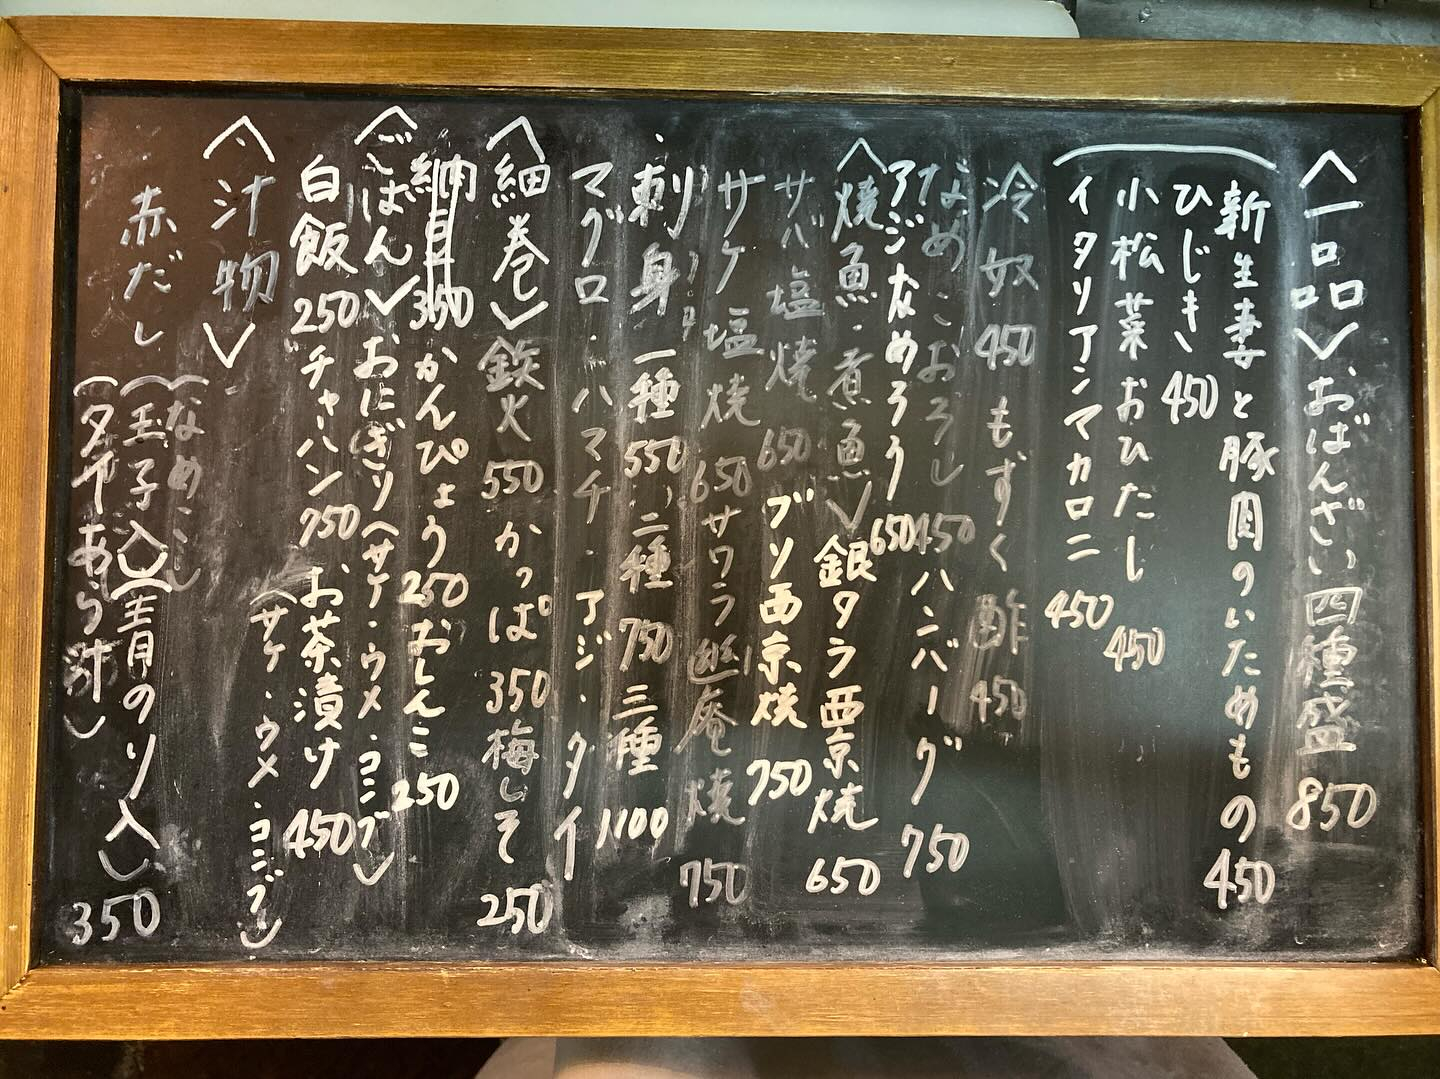 〈一品〉、おばんざい四種盛 850
新生妻と豚肉のいためもの 450
ひじき 450
小松菜おひたし 450
イタリアンマカロニ 450
冷奴 450 もずく酢 450
なめこおろし 450 ハンバーグ 750
アジなめろう 650
〈焼魚・煮魚〉銀タラ西京焼 650
サバ塩焼 650 ブリ西京焼 750
サケ塩焼 650 サワラ幽庵焼 750
刺身 一種 550 二種 750 三種 1100
マグロ・ハマチ・アジ・タイ
〈細巻〉鉄火 550 かっぱ 350 梅しそ 250
納豆 350 かんぴょう 250 おしんこ 250
〈ごはん〉おにぎり(サケ・ウメ・コンブ)
白飯 250 チャーハン 750 お茶漬け 450
(サケ・ウメ・コンブ)
〈汁物〉
赤だし
(なめこ)
(玉子入)(青のり入)
(タイあら汁) 350